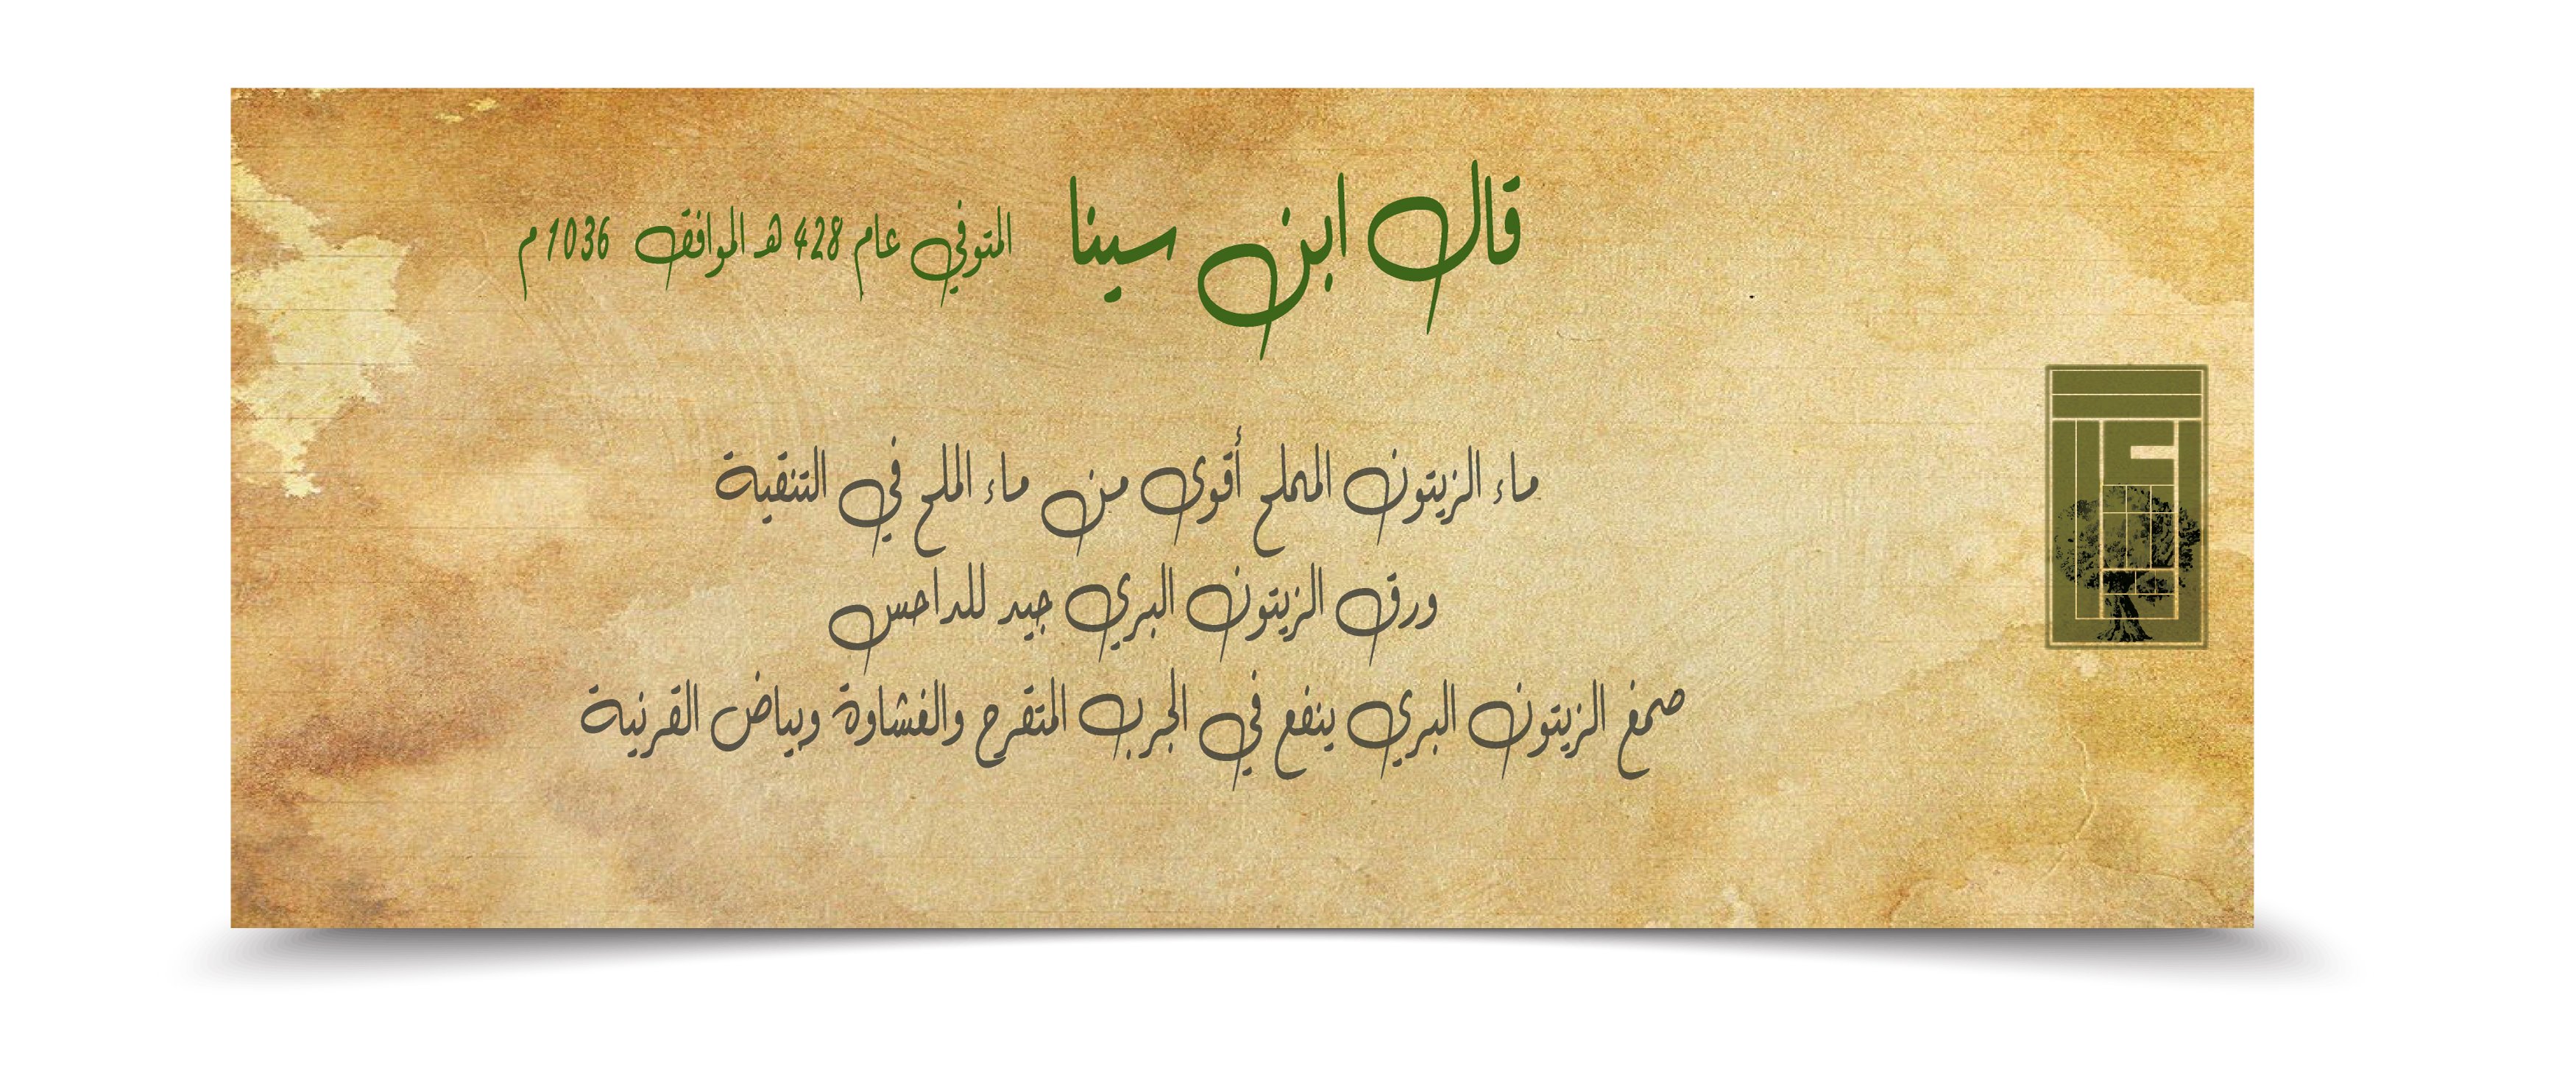 قال ابن سينا المتوفي عام 428 هـ الموافق 1036 م
ماء الزيتون المملح أقوى من ماء الملح في التنقية
ورق الزيتون البري جيد للداحس
صمغ الزيتون البري ينفع في الجرب المتقرح والغشاوة وبياض القرنية